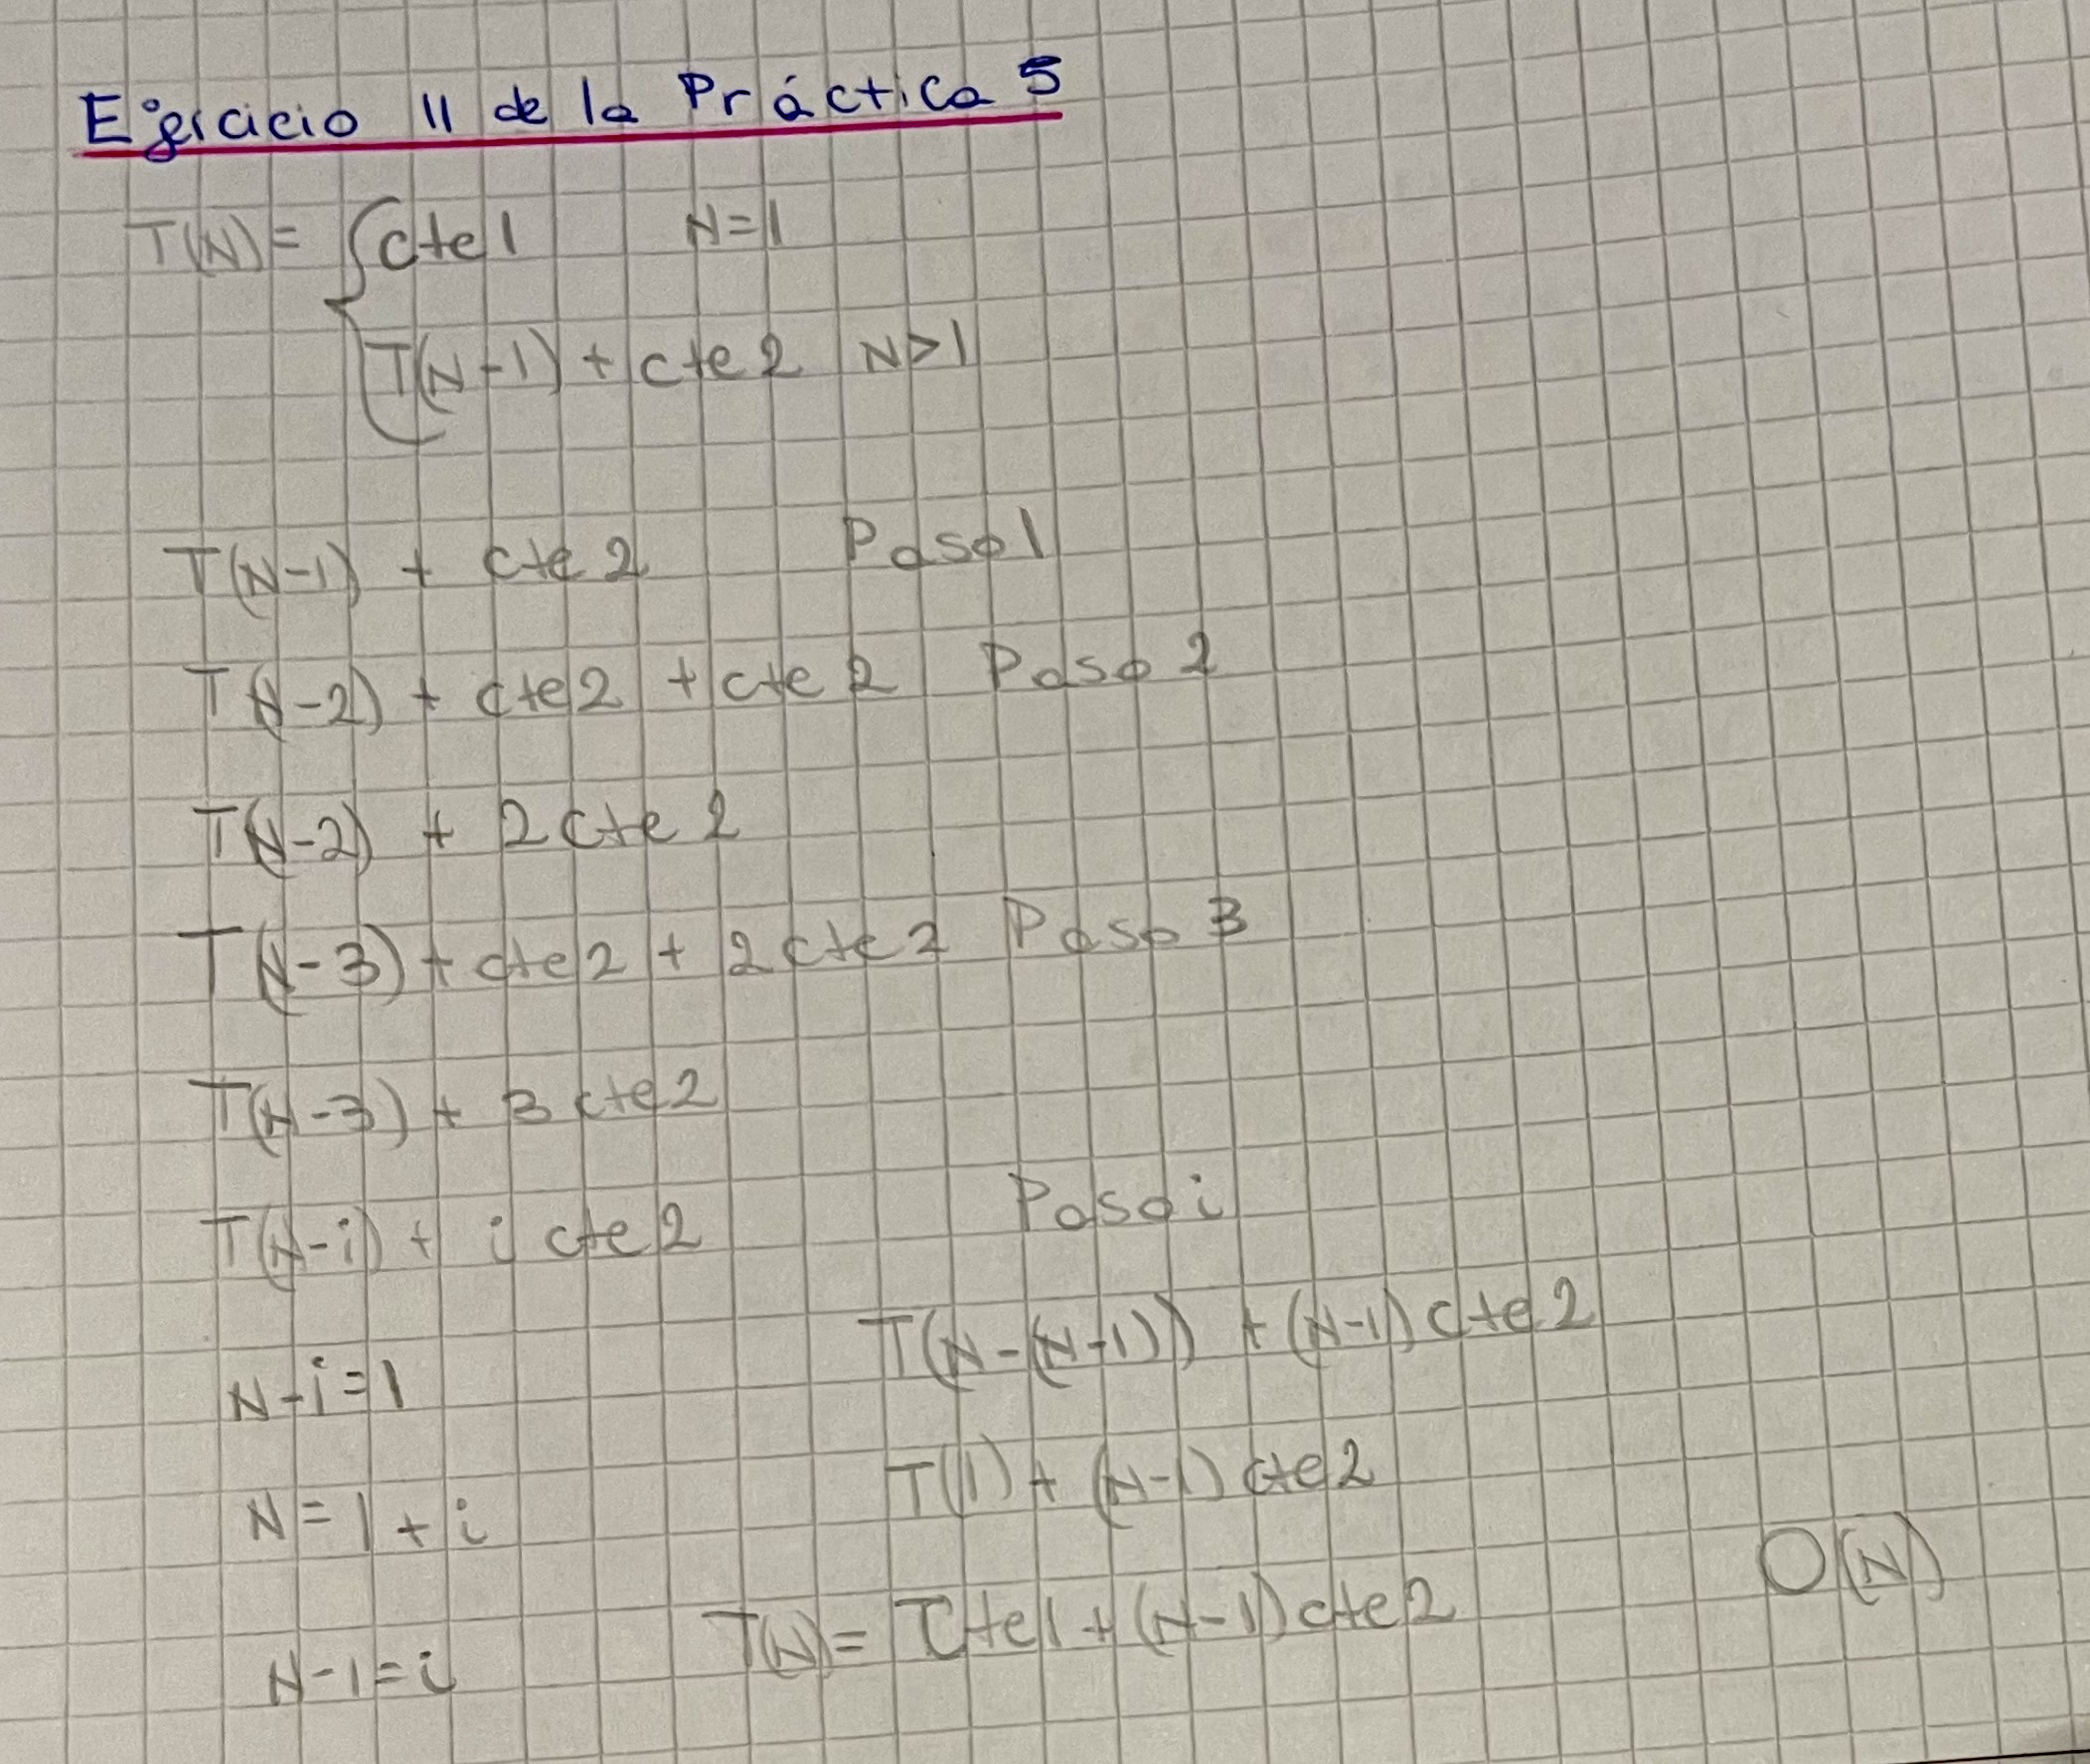 Ejercicio 11 de la Práctica 5
T(N) = { cte1 N=1
T(N-1) + cte2 N>1
T(N-1) + cte2 Paso 1
T(N-2) + cte2 + cte2 Paso 2
T(N-2) + 2cte2
T(N-3) + cte2 + 2cte2 Paso 3
T(N-3) + 3cte2
T(N-i) + i cte2 Paso i
N-i=1
N=1+i
N-1=i
T(N-(N-1)) + (N-1)cte2
T(1) + (N-1)cte2
T(N) = cte1 + (N-1)cte2
O(N)